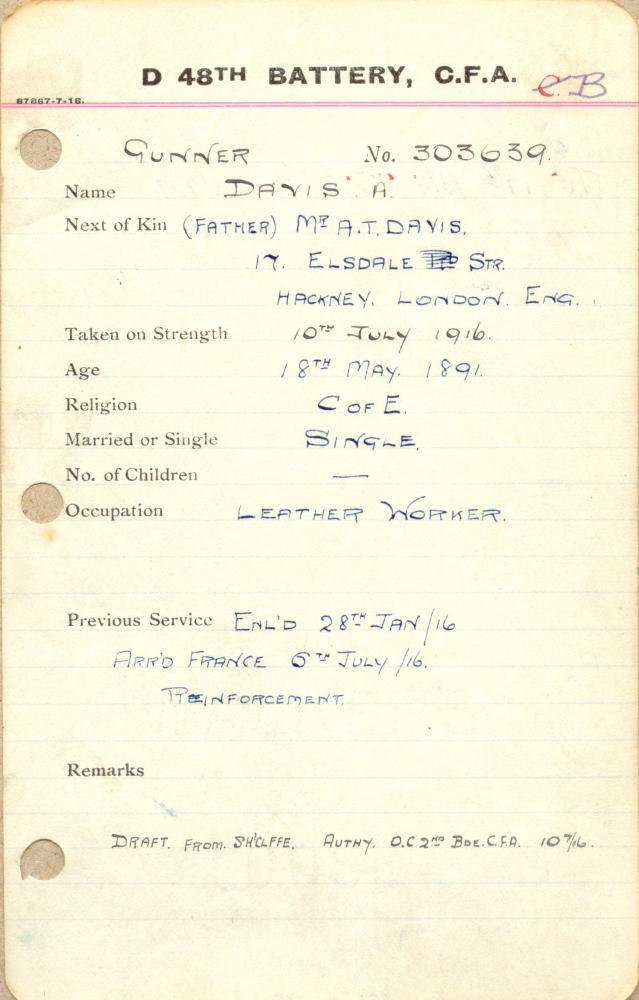 D 48TH BATTERY, C.F.A.
B7867-7-16.
GUNNER No. 303639.
Name DAVIS A.
Next of Kin (FATHER) MR A.T. DAVIS.
17. ELSDALE STR.
HACKNEY. LONDON. ENG.
Taken on Strength 10TH JULY 1916.
Age 18TH MAY. 1891.
Religion C OF E.
Married or Single SINGLE.
No. of Children —
Occupation LEATHER WORKER.
Previous Service ENL'D 28TH JAN/16
ARR'D FRANCE 6TH JULY/16.
REINFORCEMENT.
Remarks
DRAFT. FROM. SH'CLFFE. AUTHY. O.C 2ND BDE. C.F.A. 10 7/16.